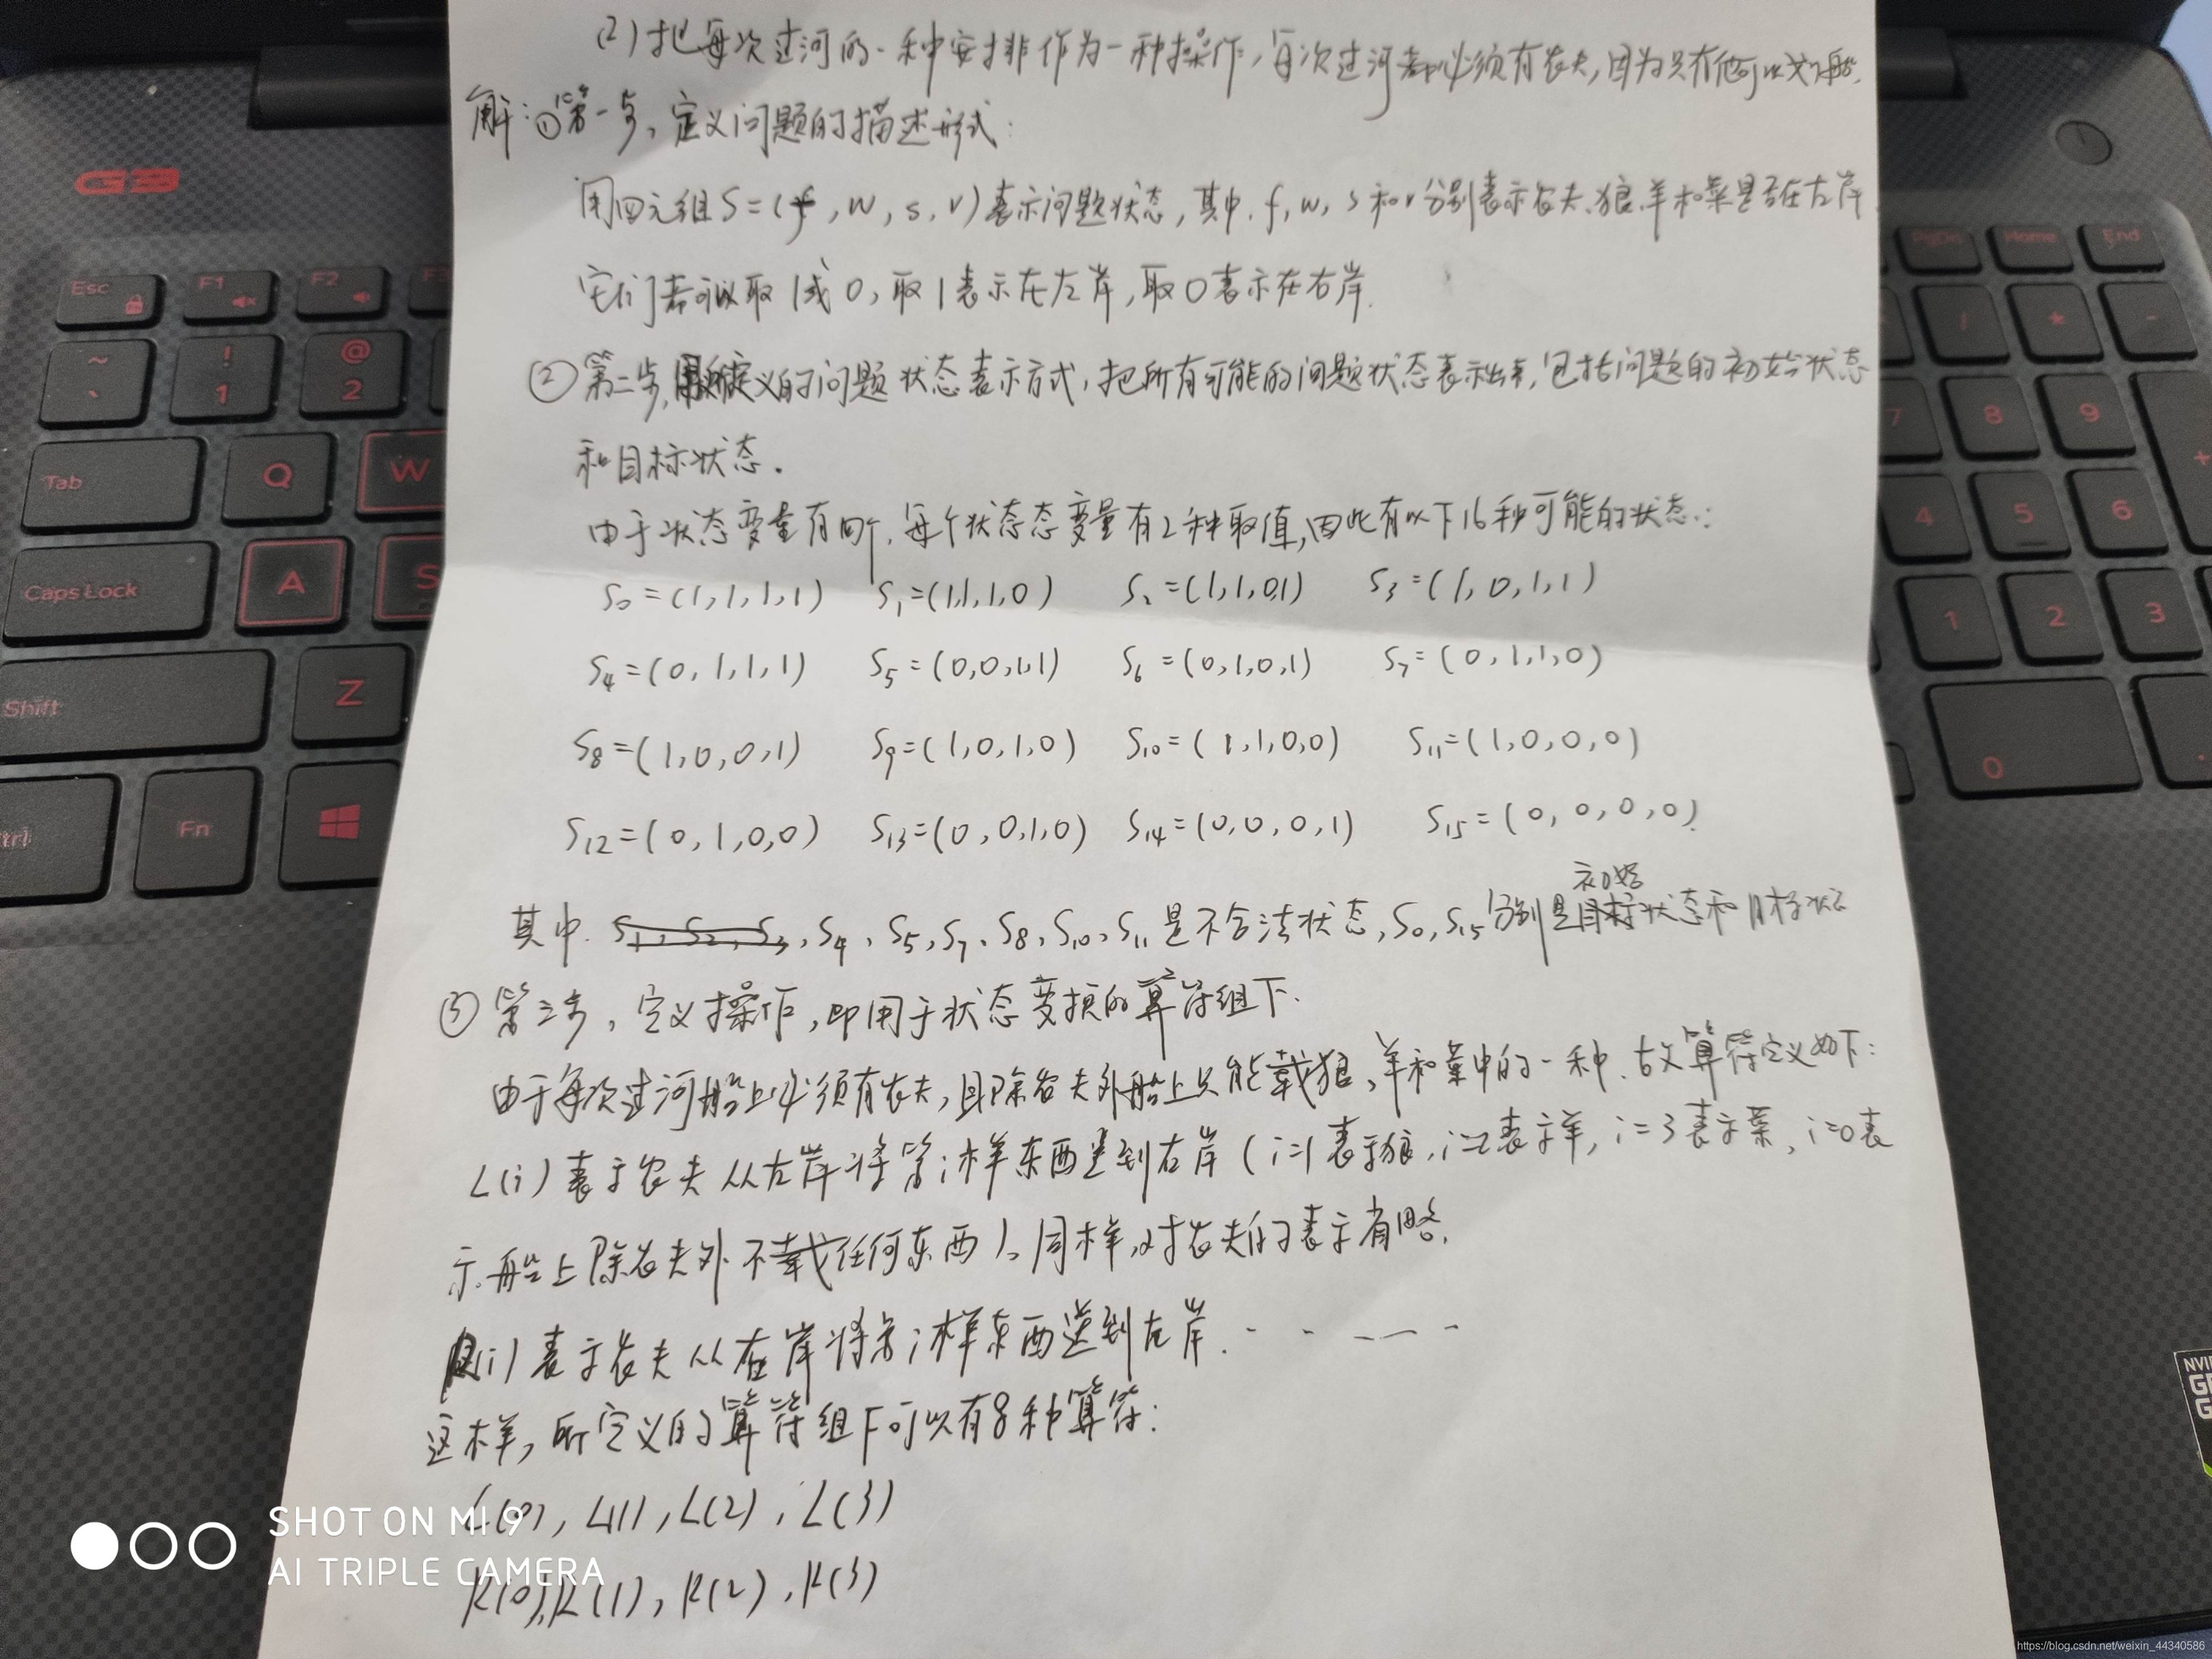 (2)把每次过河的一种安排作为一种操作,每次过河都必须有农夫,因为只有他可以划船.
解:①第一步,定义问题的描述形式:
用四元组S=(f,w,s,v)表示问题状态,其中.f,w,s和v分别表示农夫、狼、羊和菜是否在左岸
它们都可以取1或0,取1表示在左岸,取0表示在右岸.
②第二步,用所定义的问题状态表示方式,把所有可能的问题状态表示出来,包括问题的初始状态
和目标状态.
由于状态变量有四个,每个状态态变量有2种取值,因此有以下16种可能的状态:
S0=(1,1,1,1) S1=(1,1,1,0) S2=(1,1,0,1) S3=(1,0,1,1)
S4=(0,1,1,1) S5=(0,0,1,1) S6=(0,1,0,1) S7=(0,1,1,0)
S8=(1,0,0,1) S9=(1,0,1,0) S10=(1,1,0,0) S11=(1,0,0,0)
S12=(0,1,0,0) S13=(0,0,1,0) S14=(0,0,0,1) S15=(0,0,0,0).
其中.S1,S2,S3,S4、S5,S7、S8、S10、S11是不合法状态,S0,S15分别是初始状态和目标状态
③第三步,定义操作,即用于状态变换的算符组F.
由于每次过河船上必须有农夫,且除农夫外船上只能载狼、羊和菜中的一种.故算符定义如下:
L(i)表示农夫从左岸将第i样东西送到右岸(i=1表示狼,i=2表示羊,i=3表示菜,i=0表
示船上除农夫外不载任何东西).同样,对农夫的表示省略.
R(i)表示农夫从右岸将第i样东西送到左岸.
这样,所定义的算符组F可以有8种算符:
L(0),L(1),L(2),L(3)
R(0),R(1),R(2),R(3)
G3
Esc F1 F2 F3
~ ! 1 @ 2
Tab Q W
Caps Lock A S
Shift Z
Ctrl Fn
PgDn Home End
/ * -
7 8 9 +
4 5 6
1 2 3
0 .
SHOT ON MI 9
AI TRIPLE CAMERA
https://blog.csdn.net/weixin_44340586